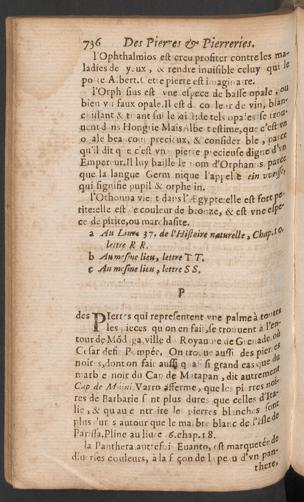 736 Des Pierres & Pierreries.
l'Ophthalmios est creu profiter contre les ma-
ladies de yeux, & rendre inuisible celuy qui le
porte Albert. Cette pierre est imaginaire.
l'Orphasius est vne espece de basse opale, ou
bien vn faux opale. Il est de couleur de vin, blan-
& tirant sur le de tels opales se trou-
uent dans Hongrie Mais Albert estime, que c'est vn
opale beaucoup precieux, & considerable, parce
qu'il dit que c'est vne pierre precieuse digne d'vn
Empereur. Il luy baille le nom d'Orphanus parce
que la langue Germanique l'appelle ein
qui signifie pupil & orphelin.
l'Othonna vient dans l'Ægypte: elle est fort pe-
tite: elle est de couleur de bronze, & est vne espe-
ce de pirite, ou marchasite.
a Au Liure 37. de l'Histoire naturelle, Chap. 10.
lettre R R.
b Au mesme lieu, lettre T T.
c Au mesme lieu, lettre S S.
P
des Pierres qui representent vne palme à toutes
les pieces qu on en fait, se trouuent à l'en-
tour de ville du Royaume de Grenade, où
Cesar defit Pompée. On trouue aussi des pierres
noires, dont on fait aussi grand cas que du
marbre noir du Cap de Matapan, dit autrement
Cap de Maini. Varro asserme, que les pierres noi-
res de Barbarie sont plus dures que celles d'Ita-
lie, & qu au contraire les pierres blanches sont
plus dures autour que le marbre blanc de l'isle de
Pline au liure 6. chap. 18.
la Panthera autrefois Euanto, est marquetée de
diuerses couleurs, à la façon de la peau d'vn pan-
there,